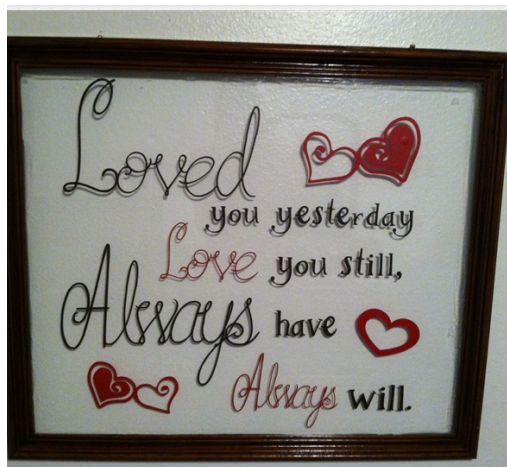 Loved
you yesterday
Love you still,
Always have
Always will.